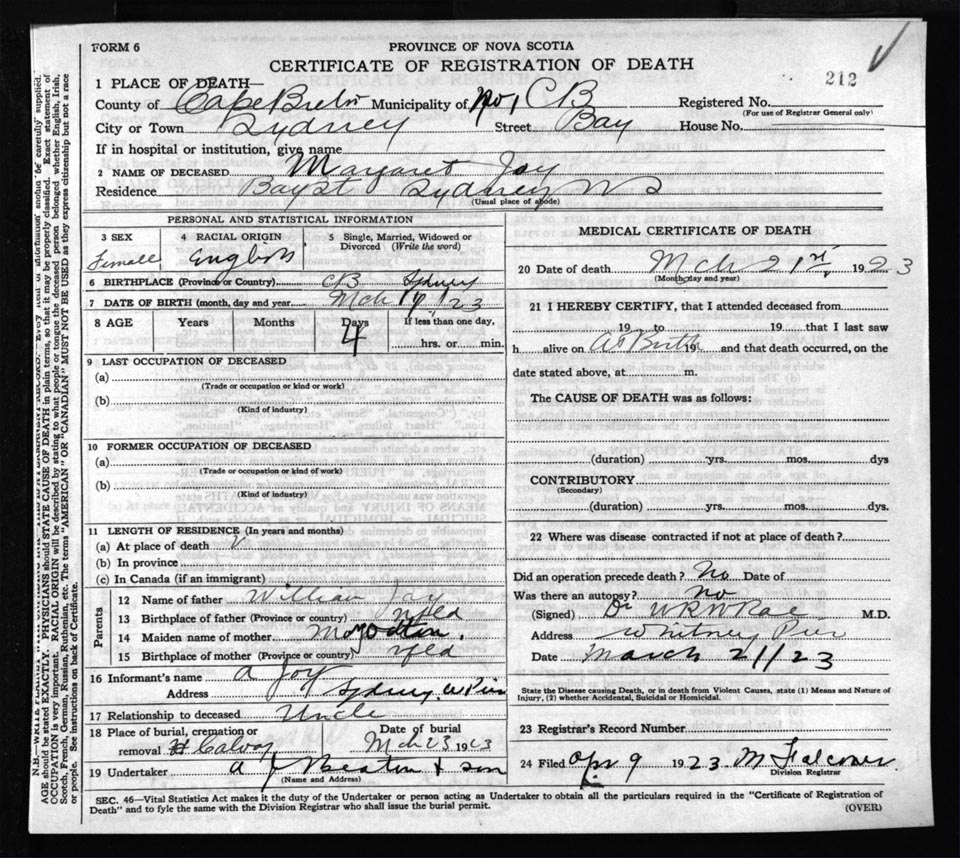 FORM 6
PROVINCE OF NOVA SCOTIA
CERTIFICATE OF REGISTRATION OF DEATH
212
1 PLACE OF DEATH
County of Cape Breton Municipality of No 1 CB Registered No.
(For use of Registrar General only)
City or Town Sydney Street Bay House No.
If in hospital or institution, give name
2 NAME OF DECEASED Margaret Joy
Residence Bay St Sydney NS
(Usual place of abode)
PERSONAL AND STATISTICAL INFORMATION
3 SEX 4 RACIAL ORIGIN 5 Single, Married, Widowed or Divorced (Write the word)
Female English
6 BIRTHPLACE (Province or Country) CB Sydney
7 DATE OF BIRTH (month, day and year) Mch 17 1923
8 AGE Years Months Days If less than one day,
4 hrs. or min.
9 LAST OCCUPATION OF DECEASED
(a)
(Trade or occupation or kind or work)
(b)
(Kind of industry)
10 FORMER OCCUPATION OF DECEASED
(a)
(Trade or occupation or kind of work)
(b)
(Kind of industry)
11 LENGTH OF RESIDENCE (In years and months)
(a) At place of death
(b) In province
(c) In Canada (if an immigrant)
Parents
12 Name of father William Joy
13 Birthplace of father (Province or country) Nfld
14 Maiden name of mother
15 Birthplace of mother (Province or country) Nfld
16 Informant's name A Joy
Address Sydney W Pier
17 Relationship to deceased Uncle
18 Place of burial, cremation or removal H Calvary Date of burial Mch 23 1923
19 Undertaker A J Beaton & son
(Name and Address)
MEDICAL CERTIFICATE OF DEATH
20 Date of death Mch 21st, 1923
(Month, day and year)
21 I HEREBY CERTIFY, that I attended deceased from
19 to 19 that I last saw
h alive on At Birth 19 and that death occurred, on the
date stated above, at m.
The CAUSE OF DEATH was as follows:
(duration) yrs. mos. dys
CONTRIBUTORY
(Secondary)
(duration) yrs. mos. dys.
22 Where was disease contracted if not at place of death?
Did an operation precede death? No Date of
Was there an autopsy? No
(Signed) Dr M.D.
Address Whitney Pier
Date March 21/23
State the Disease causing Death, or in death from Violent Causes, state (1) Means and Nature of
Injury, and (2) whether Accidental, Suicidal or Homicidal.
23 Registrar's Record Number
24 Filed Apr 9 1923 M Falconer
Division Registrar
SEC. 46—Vital Statistics Act makes it the duty of the Undertaker or person acting as Undertaker to obtain all the particulars required in the "Certificate of Registration of
Death" and to fyle the same with the Division Registrar who shall issue the burial permit.
(OVER)